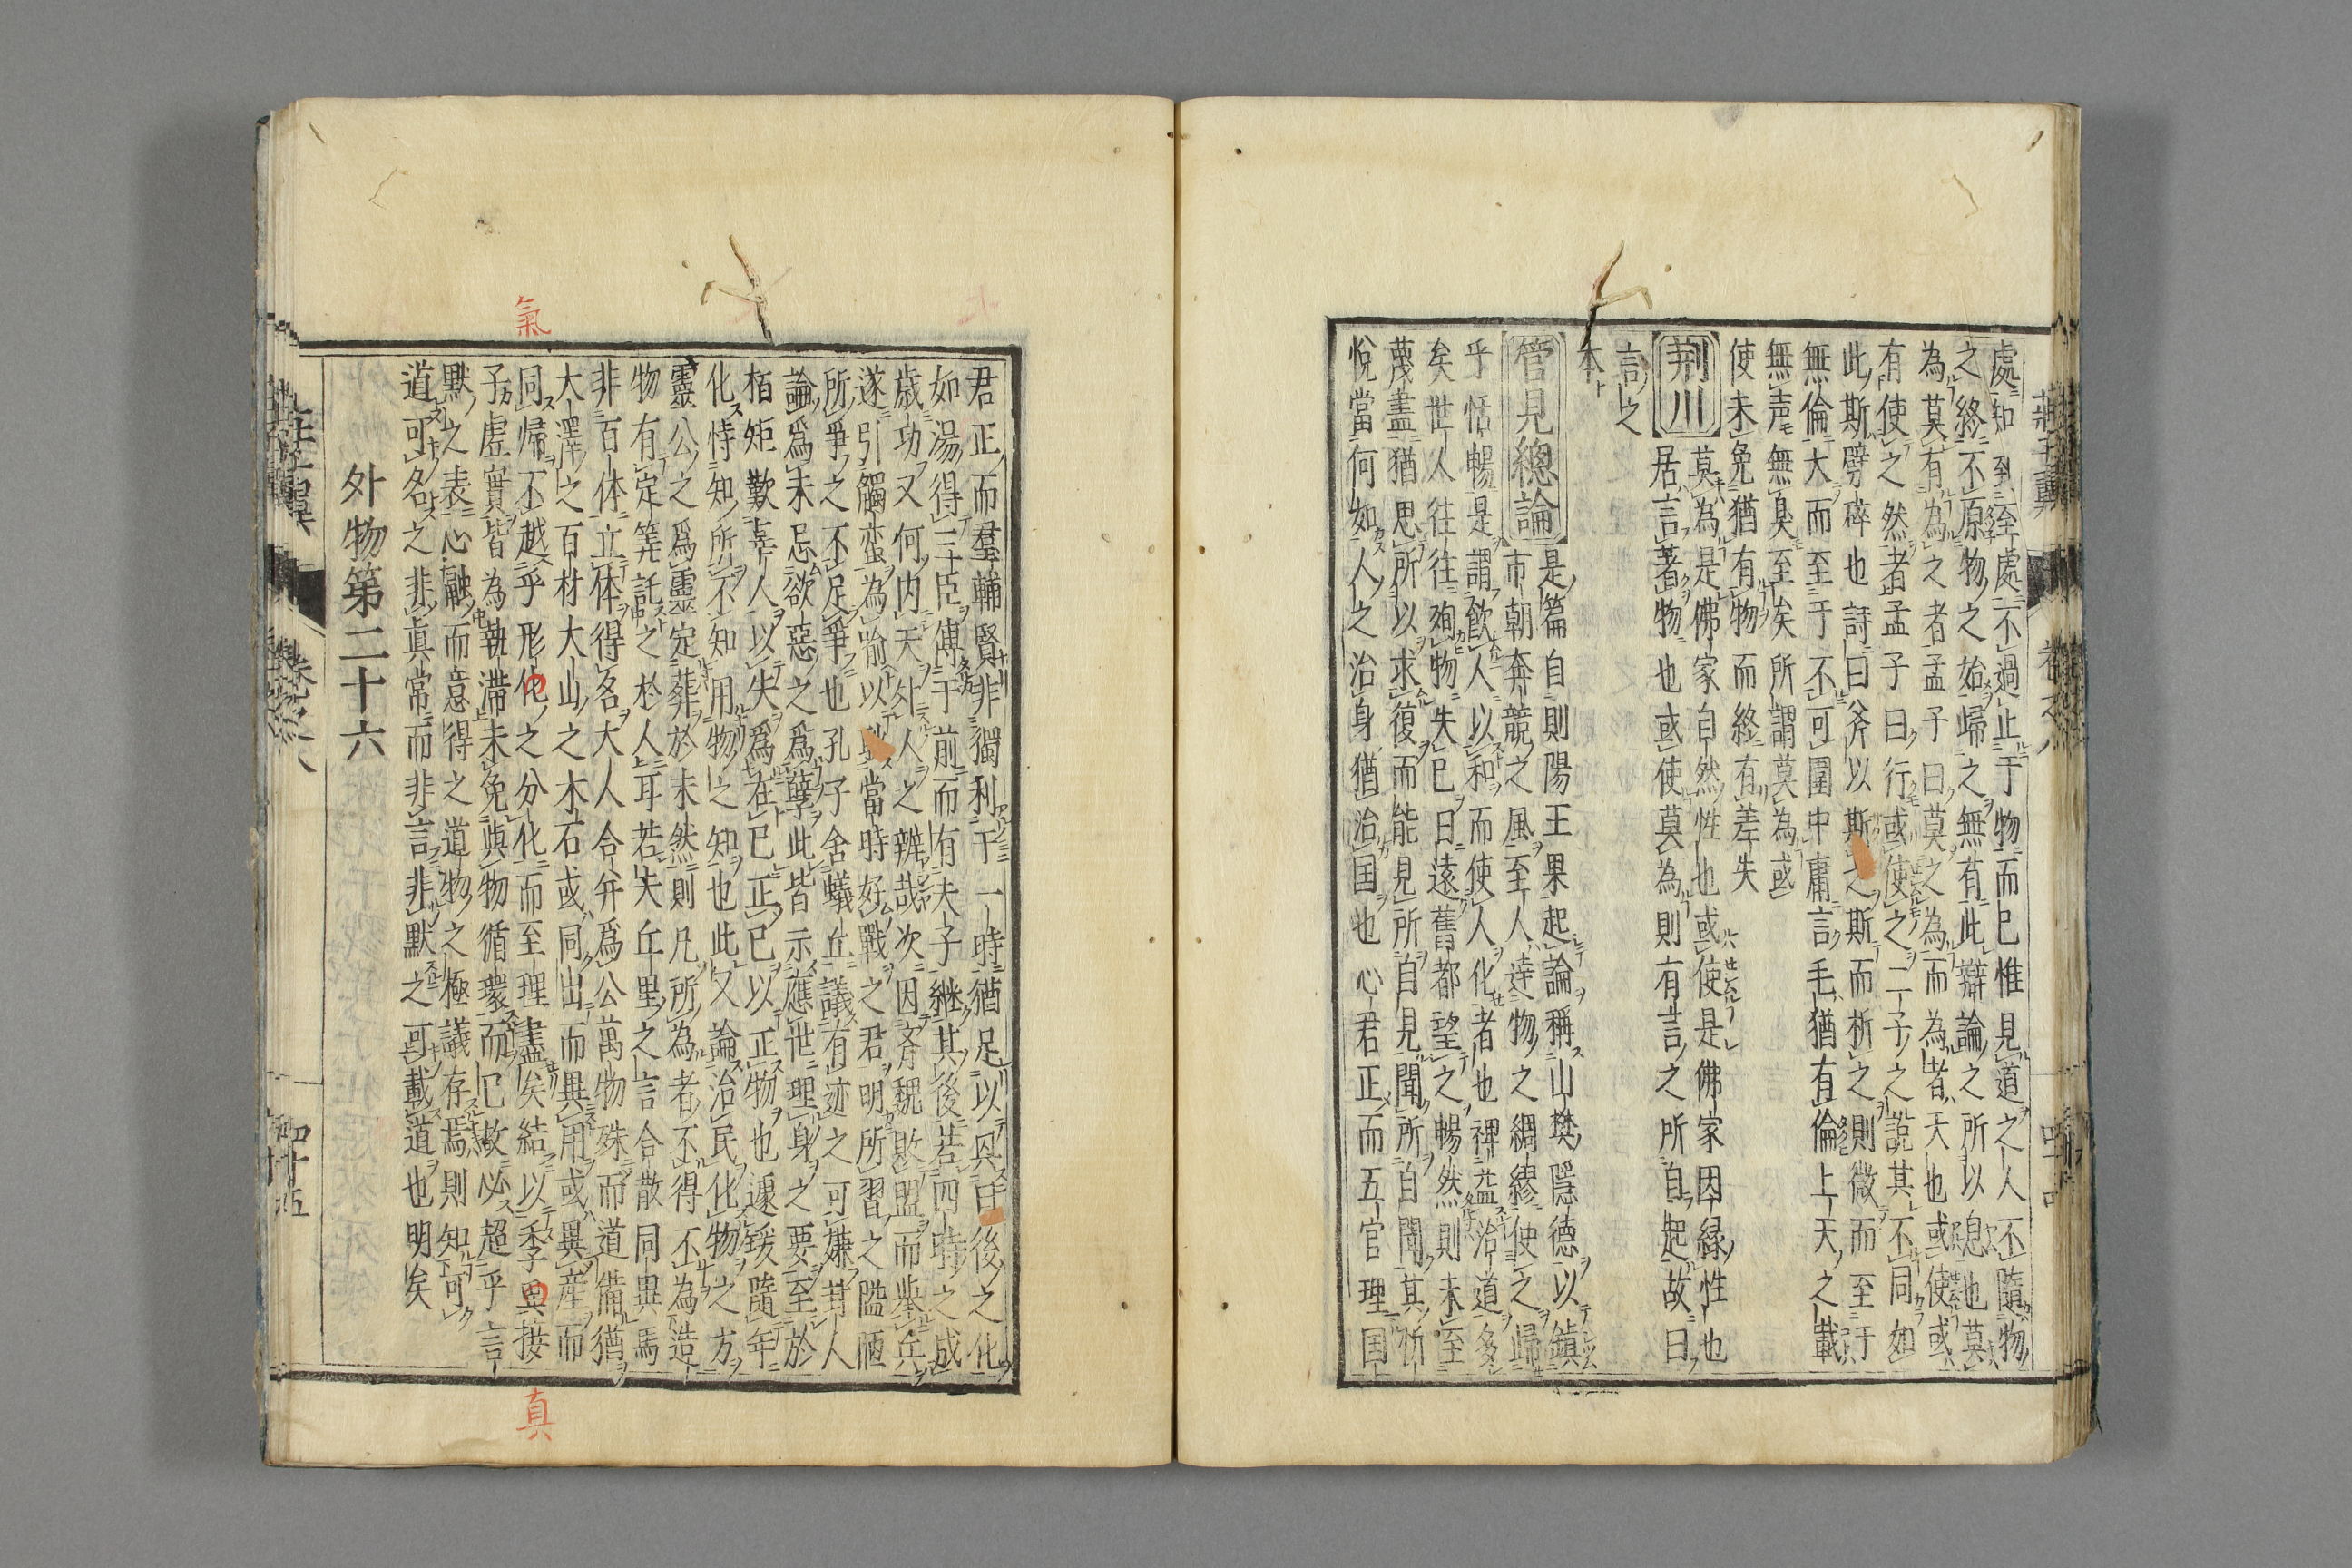 處知到至處不過止于物而已惟見道之人不隨物
之終不原物之始歸之無有此辯論之所以息也莫
為莫有為之者孟子曰莫之為而為者天也或使或
有使之然者孟子曰行或使之二子之說其不同如
此斯劈碎也詩曰斧以斯之斯而析之則微而至于
無倫大而至于不可圍中庸言毛猶有倫上天之載
無声無臭至矣所謂莫為或
使未免猶有物而終有差失
荊川
莫為是佛家自然性也或使是佛家因緣性也
居言著物也或使莫為則有言之所自起故曰
言之
本
管見總論
是篇自則陽王果起論稱山樊隱德以鎮
市朝奔競之風至人達物之綢繆使之歸
乎恬暢是謂飲人以和而使人化者也禆益治道多
矣世人往往殉物失已日遠舊都望之暢然則未至
蔑盡猶思所以求復而能見所自見聞所自聞其忻
悅當何如人之治身猶治国也心君正而五官理国
莊子翼
卷之八
君正而羣輔賢非獨利于一時猶足以與曰後之化
如湯得三臣傅于前而有夫子継其後若四時之成
歲功又何内天外人之辨哉次因齊魏敗盟而舉兵
遂引觸蛮為喻以當時好戰之君明所習之隘陋
所爭之不足爭也孔子舍蟻丘議有迹之可嫌葑人
論爲未忘欲惡之爲孽此皆示應世理身之要至於
栢矩歎辜人以失爲在已正已以正物也遽瑗隨年
化恃知所不知用物之知也此又論治民化物之方
靈公之爲靈定葬於未然則凡所為者不得不為造
物有定筭託之於人耳若夫丘里之言合散同異馬
非百体立体得名大人合并爲公萬物殊而道備猶
大澤之百材大山之木石或同出而異用或異產而
同帰不越乎形化之分化而至理盡矣結以季真接
子虛實皆為執滯未免與物循環而已故必超乎言
默之表心融而意得之道物之極議存焉則知可
道可名之非真常而非言非默之可載道也明矣
外物第二十六
莊子翼
卷之八
四十五
氣
真